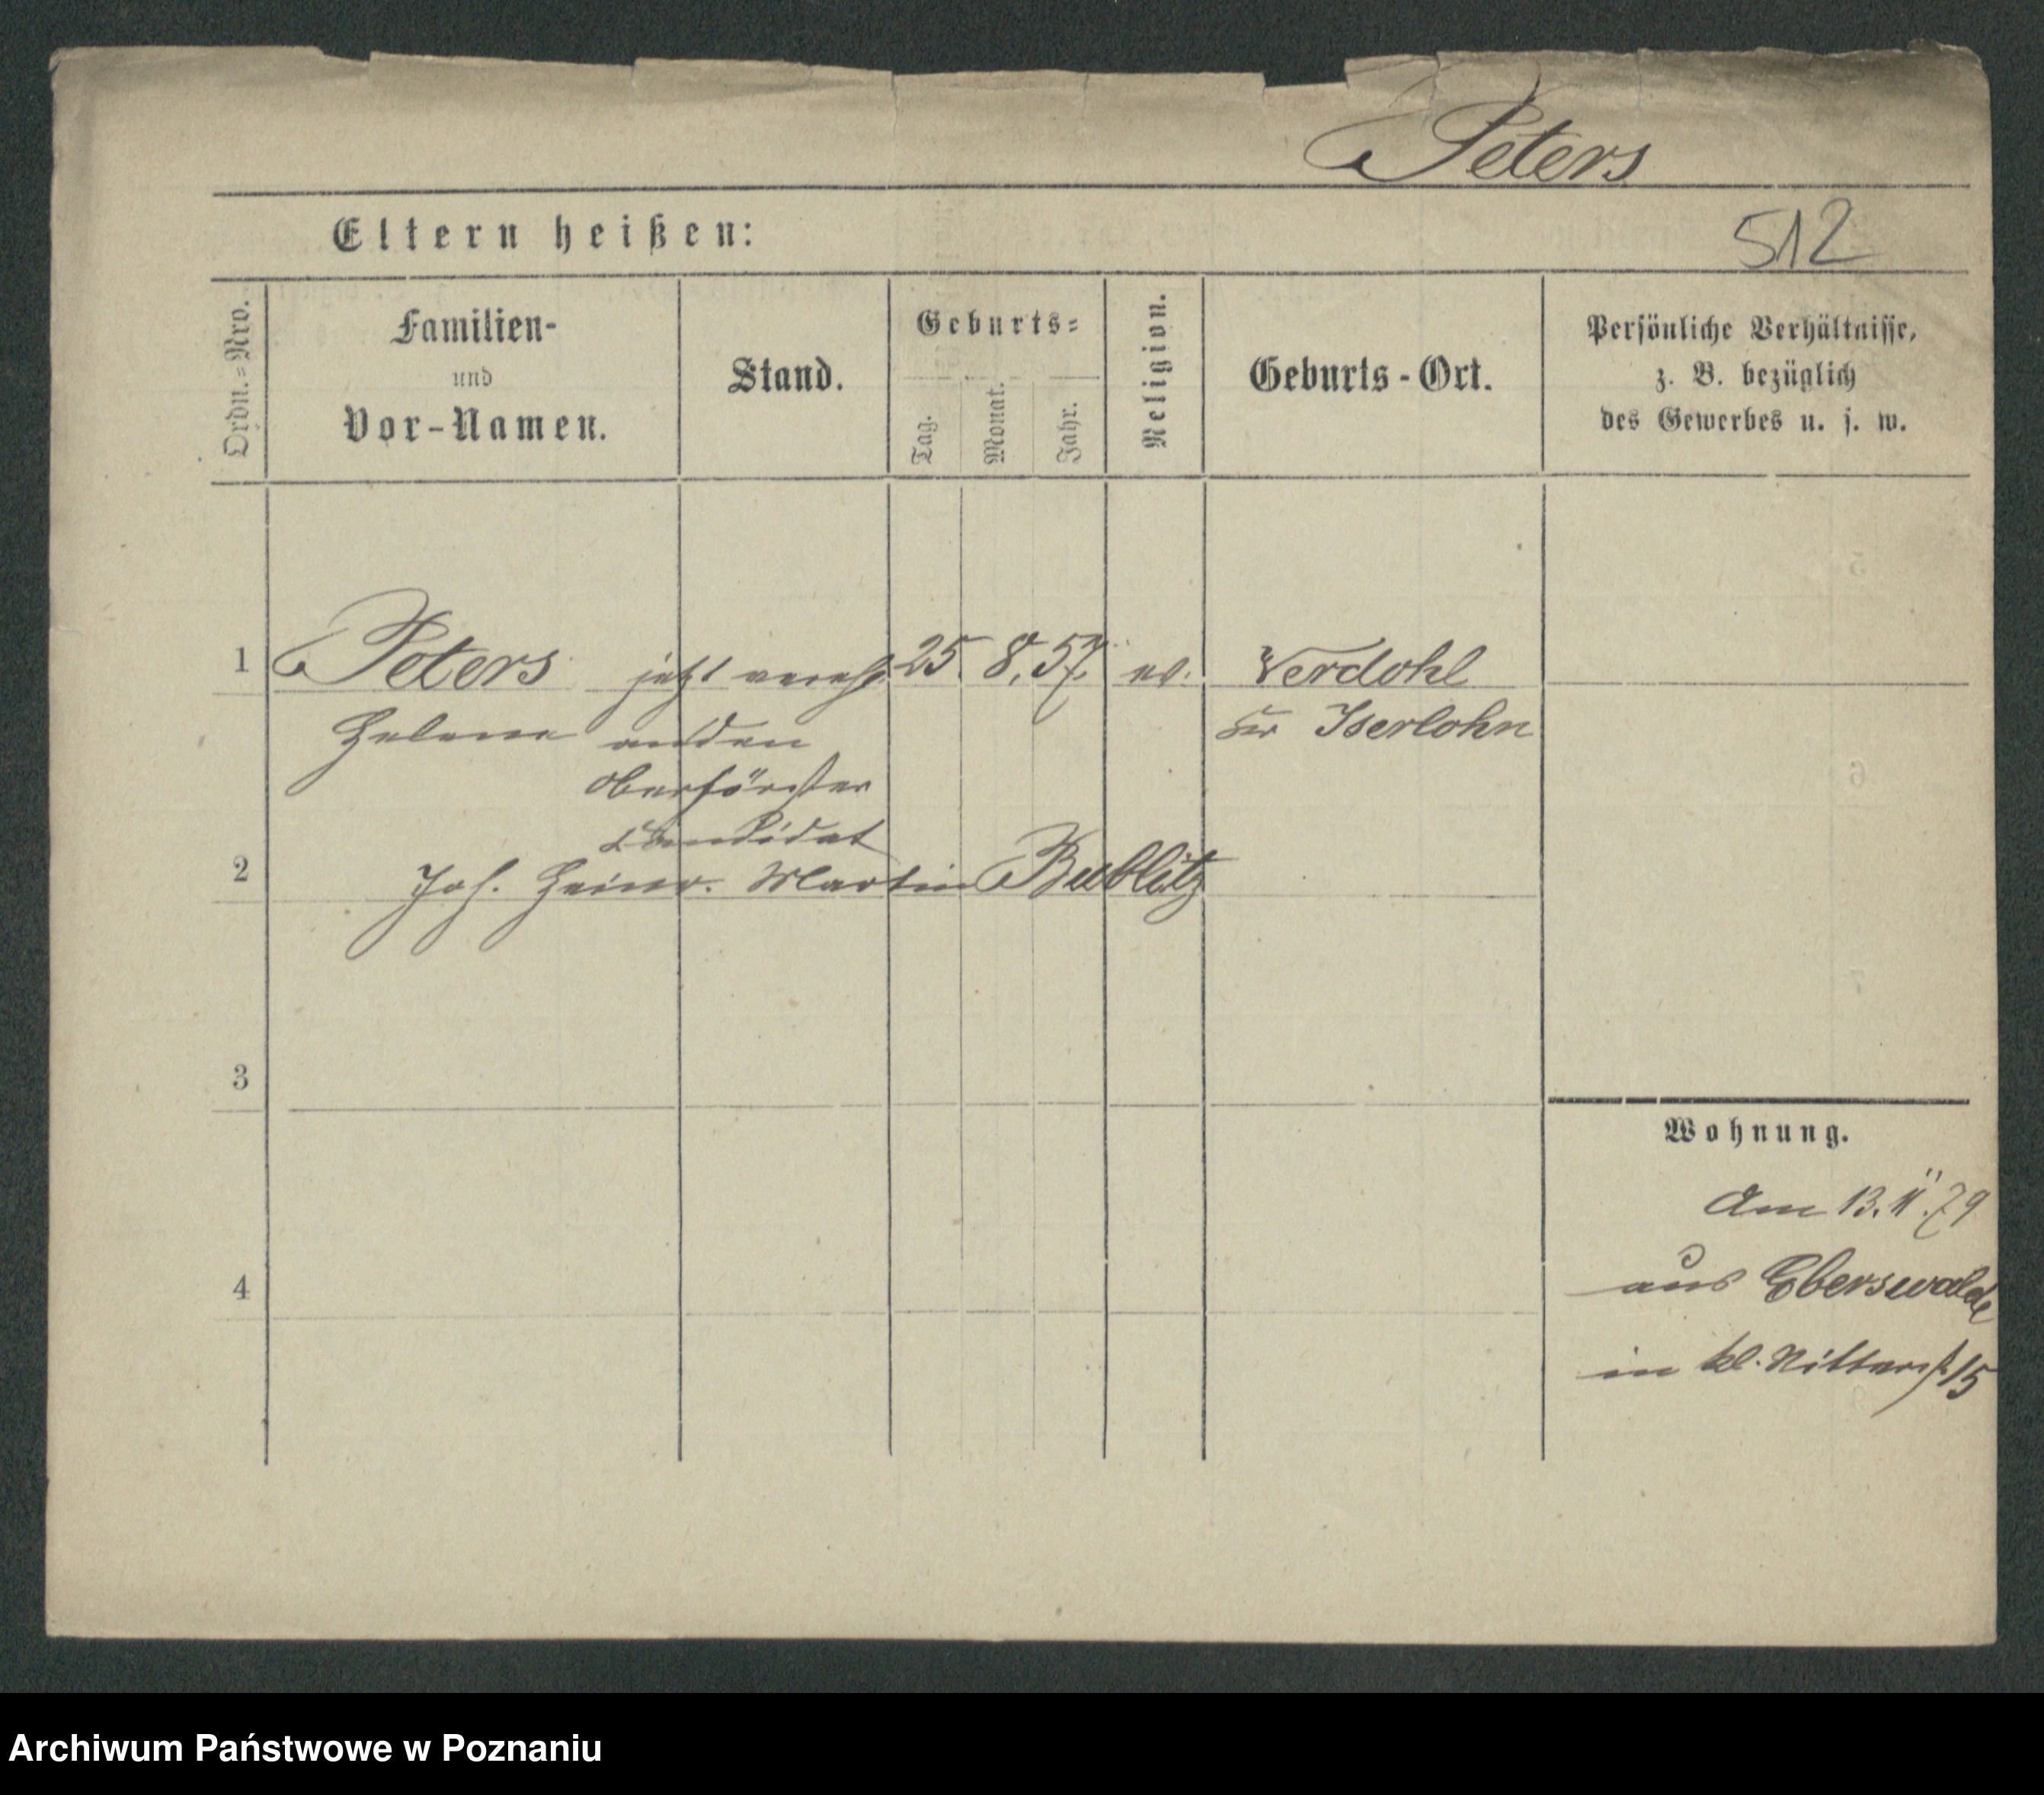 Peters
Eltern heißen:
512
Ordn.=Nro.
Familien-
und
Vor-Namen.
Stand.
Geburts=
Tag.
Monat.
Jahr.
Religion.
Geburts-Ort.
Persönliche Verhältnisse,
z. B. bezüglich
des Gewerbes u. s. w.
1 Peters jetzt vereh. 25. 8. 57. ev. Verdohl
Helene an den Kr Iserlohn
Oberförster
Candidat
2 Joh. Heinr. Martin Bublitz
3
Wohnung.
Am 13. 11. 79
4 aus Eberswalde
in kl. Ritterst 15